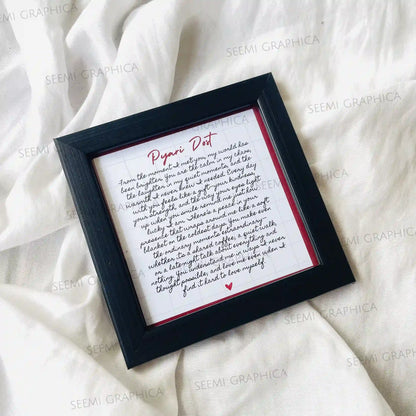 Pyari Dost
From the moment I met you, my world has
been laughter. You are the calm in my chaos,
the laughter in my quiet moments, and the
warmth I never knew I needed. Every day
with you feels like a gift—your kindness,
your strength, and the way your eyes light
up when you smile remind me just how
lucky I am. There's a peace in your
presence that wraps around me like a soft
blanket on the coldest days. You make even
the ordinary moments extraordinary
whether it's a shared coffee, a quiet walk,
or a late-night talk about everything and
nothing. You understand me in ways I never
thought possible, and love me even when I
find it hard to love myself.
SEEMI GRAPHICA
SEEMI GRAPHICA
SEEMI GRAPHICA
SEEMI GRAPHICA
SEEMI GRAPHICA
SEEMI GRAPHICA
SEEMI GRAPHICA
SEEMI GRAPHICA
SEEMI GRAPHICA